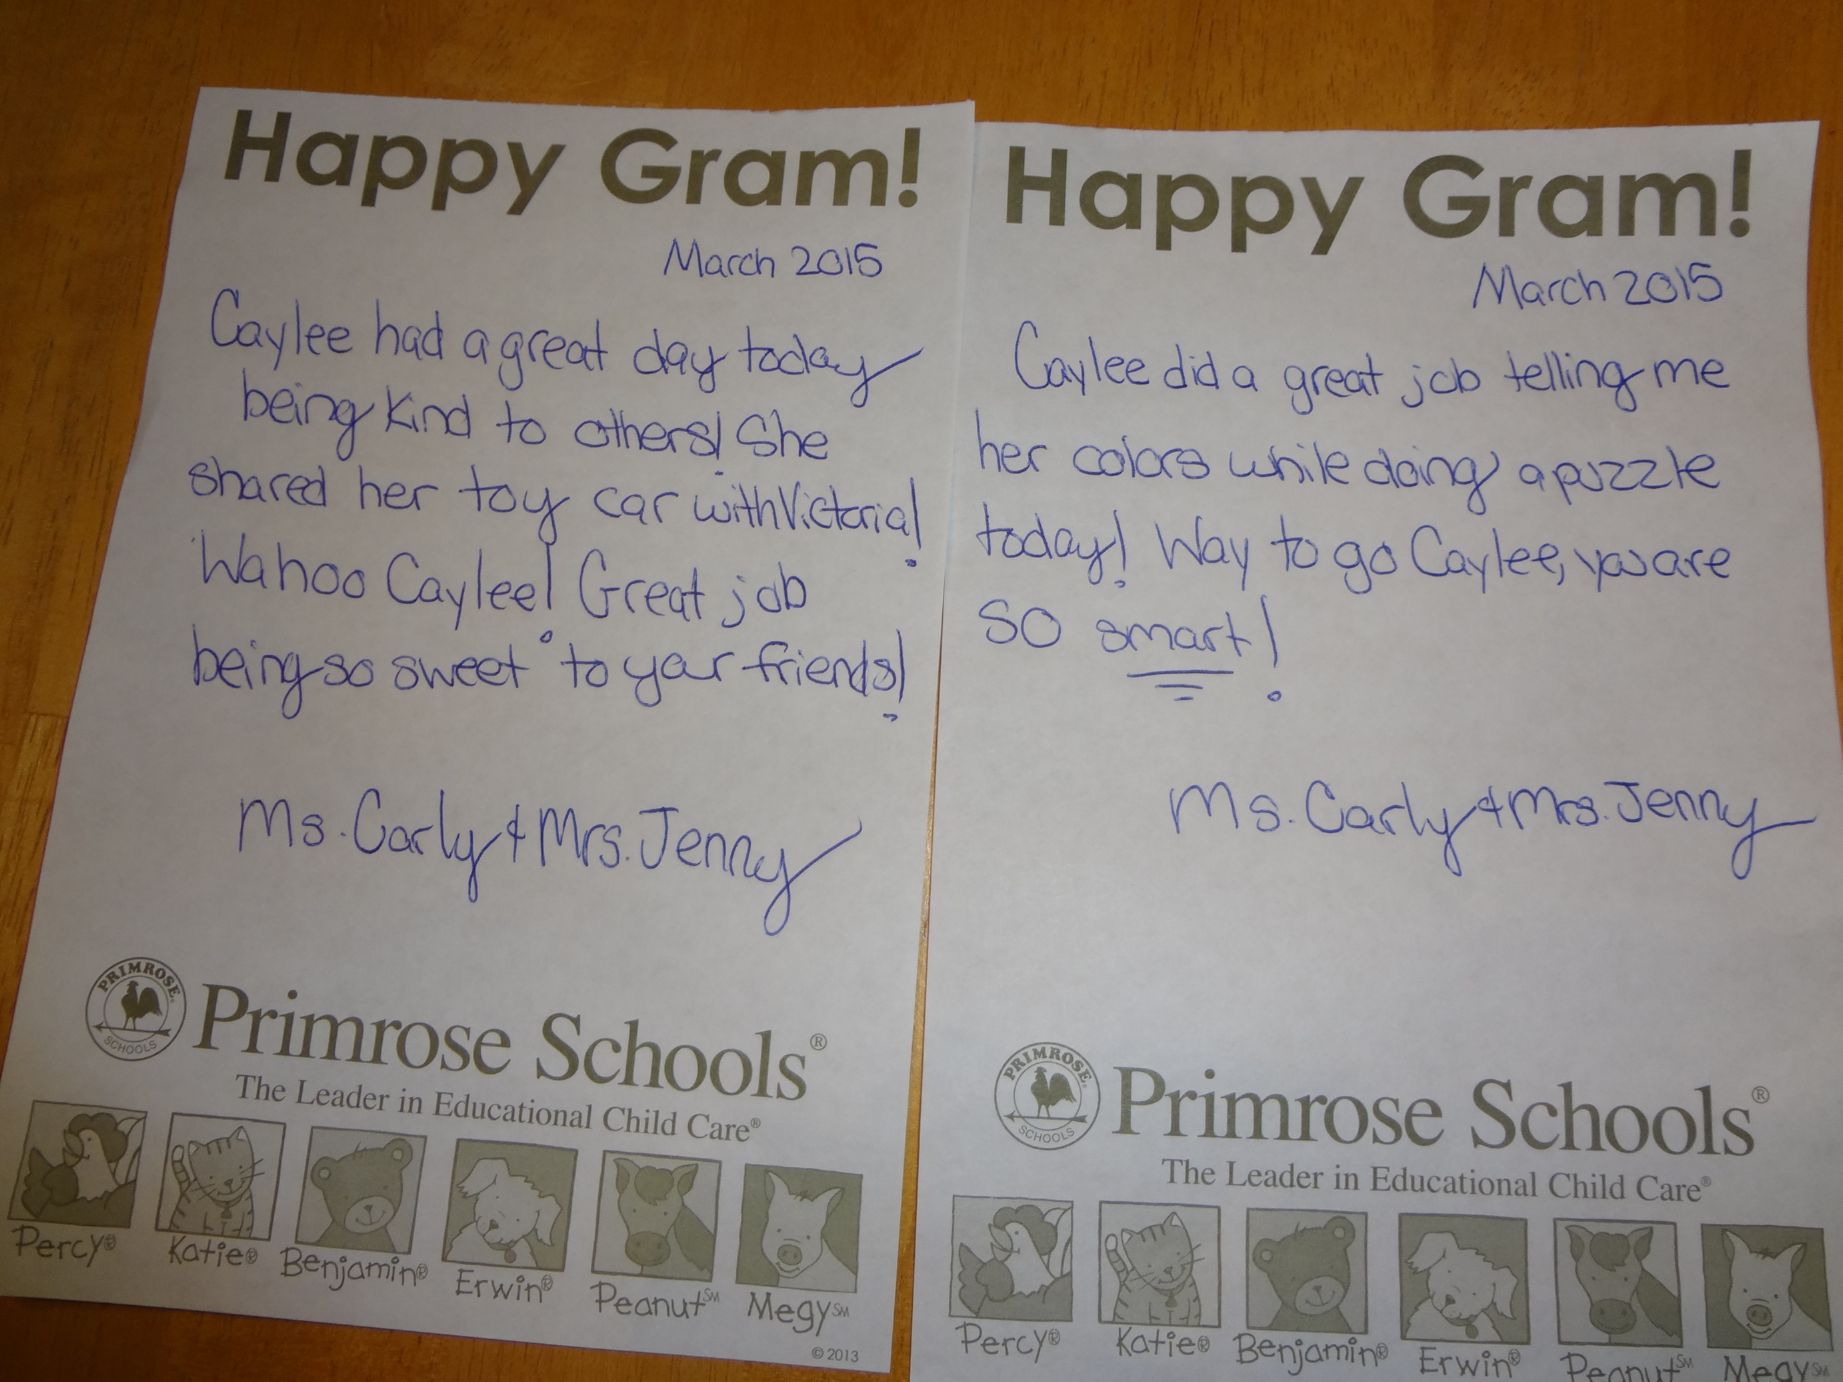 Happy Gram!
March 2015
Caylee had a great day today
being kind to others! She
shared her toy car with Victoria!
Wahoo Caylee! Great job
being so sweet to your friends!
Ms. Carly & Mrs. Jenny
PRIMROSE
SCHOOLS
Primrose Schools®
The Leader in Educational Child Care®
Percy® Katie® Benjamin® Erwin® Peanut℠ Megy℠
© 2013
Happy Gram!
March 2015
Caylee did a great job telling me
her colors while doing a puzzle
today! Way to go Caylee, you are
SO smart!
Ms. Carly & Mrs. Jenny
PRIMROSE
SCHOOLS
Primrose Schools®
The Leader in Educational Child Care®
Percy® Katie® Benjamin® Erwin® Peanut℠ Megy℠